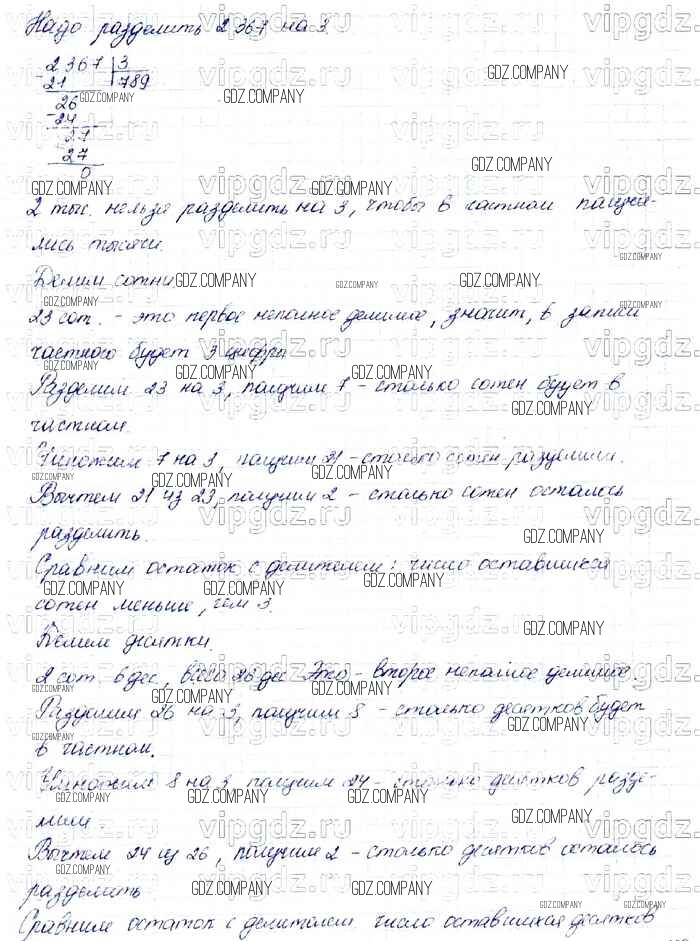 Надо разделить 2 367 на 3.
2367 | 3
21 789
26
24
27
27
0
2 тыс. нельзя разделить на 3, чтобы в частном получи-
лись тысячи.
Делим сотни
23 сот. - это первое неполное делимое, значит, в записи
частного будет 3 цифры
Разделим 23 на 3, получим 7 - столько сотен будет в
частном.
Умножим 7 на 3, получим 21 - столько сотен разделили.
Вычтем 21 из 23, получим 2 - столько сотен осталось
разделить.
Сравним остаток с делителем: число оставшихся
сотен меньше, чем 3.
Делим десятки.
2 сот. 6 дес., всего 26 дес. Это - второе неполное делимое.
Разделим 26 на 3, получим 8 - столько десятков будет
в частном.
Умножим 8 на 3, получим 24 - столько десятков разде-
лили
Вычтем 24 из 26, получим 2 - столько десятков осталось
разделить
Сравним остаток с делителем число оставшихся десятков
vipgdz.ru
GDZ.COMPANY